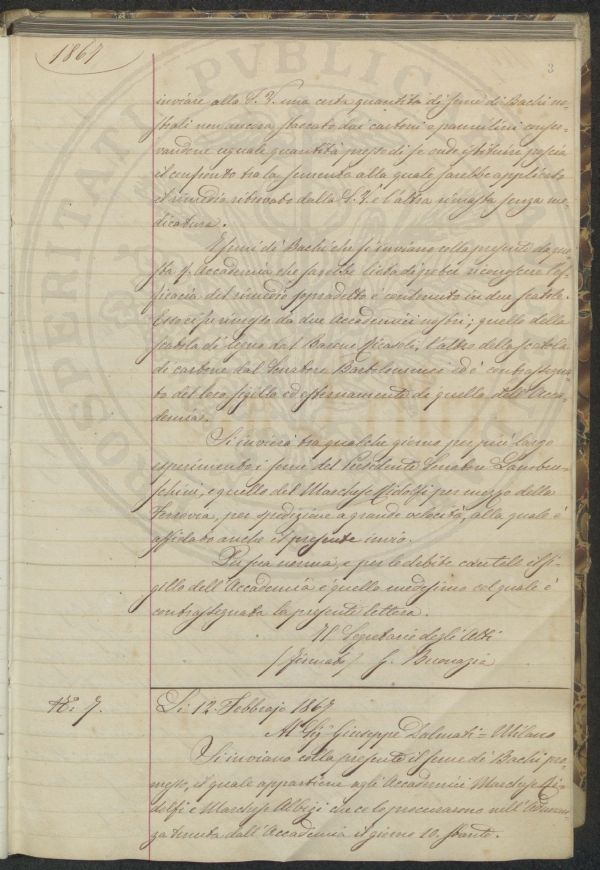 1867
3
inviare alla S. V. una certa quantità di seme di Bachi no-
strali non ancora staccato dai cartoni o pannilini conser-
vandone uguale quantità presso di se onde istituire poscia
il confronto tra la semenza alla quale sarebbe applicato
il rimedio ritrovato dalla S. V. e l'altra rimasta senza me-
dicatura.
I semi di Bachi che si inviano colla presente da que-
sta Accademia che sarebbe lieta di poter riconoscere l'ef-
ficacia del rimedio sopradetto è contenuto in due scatole.
Esso ci fu rimesso da due Accademici nostri; quello della
scatola di legno dal Barone Ricasoli, l'altro della scatola
di cartone dal Senatore Bartolommei ed è contrassegna-
to del loro sigillo ed esternamente di quello dell'Acca-
demia.
Si invierà tra qualche giorno per più largo
esperimento i semi del Presidente Senatore Lambru-
schini, e quello del Marchese Ridolfi per mezzo della
Ferrovia, per spedizione a grande velocità, alla quale è
affidato anche il presente invio.
Per sua norma, e per le debite cautele il si-
gillo dell'Accademia è quello medesimo col quale è
contrassegnata la presente lettera.
Il Segretario degli Atti
(firmato) G. Buonazia
No. 7.
Li 12. Febbrajo 1867
Al Sig. Giuseppe Dalmati = Milano
Si inviano colla presente il seme de' Bachi pro-
messo, il quale appartiene agli Accademici Marchese Ri-
dolfi e Marchese Albizi che ce lo procurarono nell'Adunan-
za tenuta dall'Accademia il giorno 10. stante.
PROSPERITATI PUBLICAE